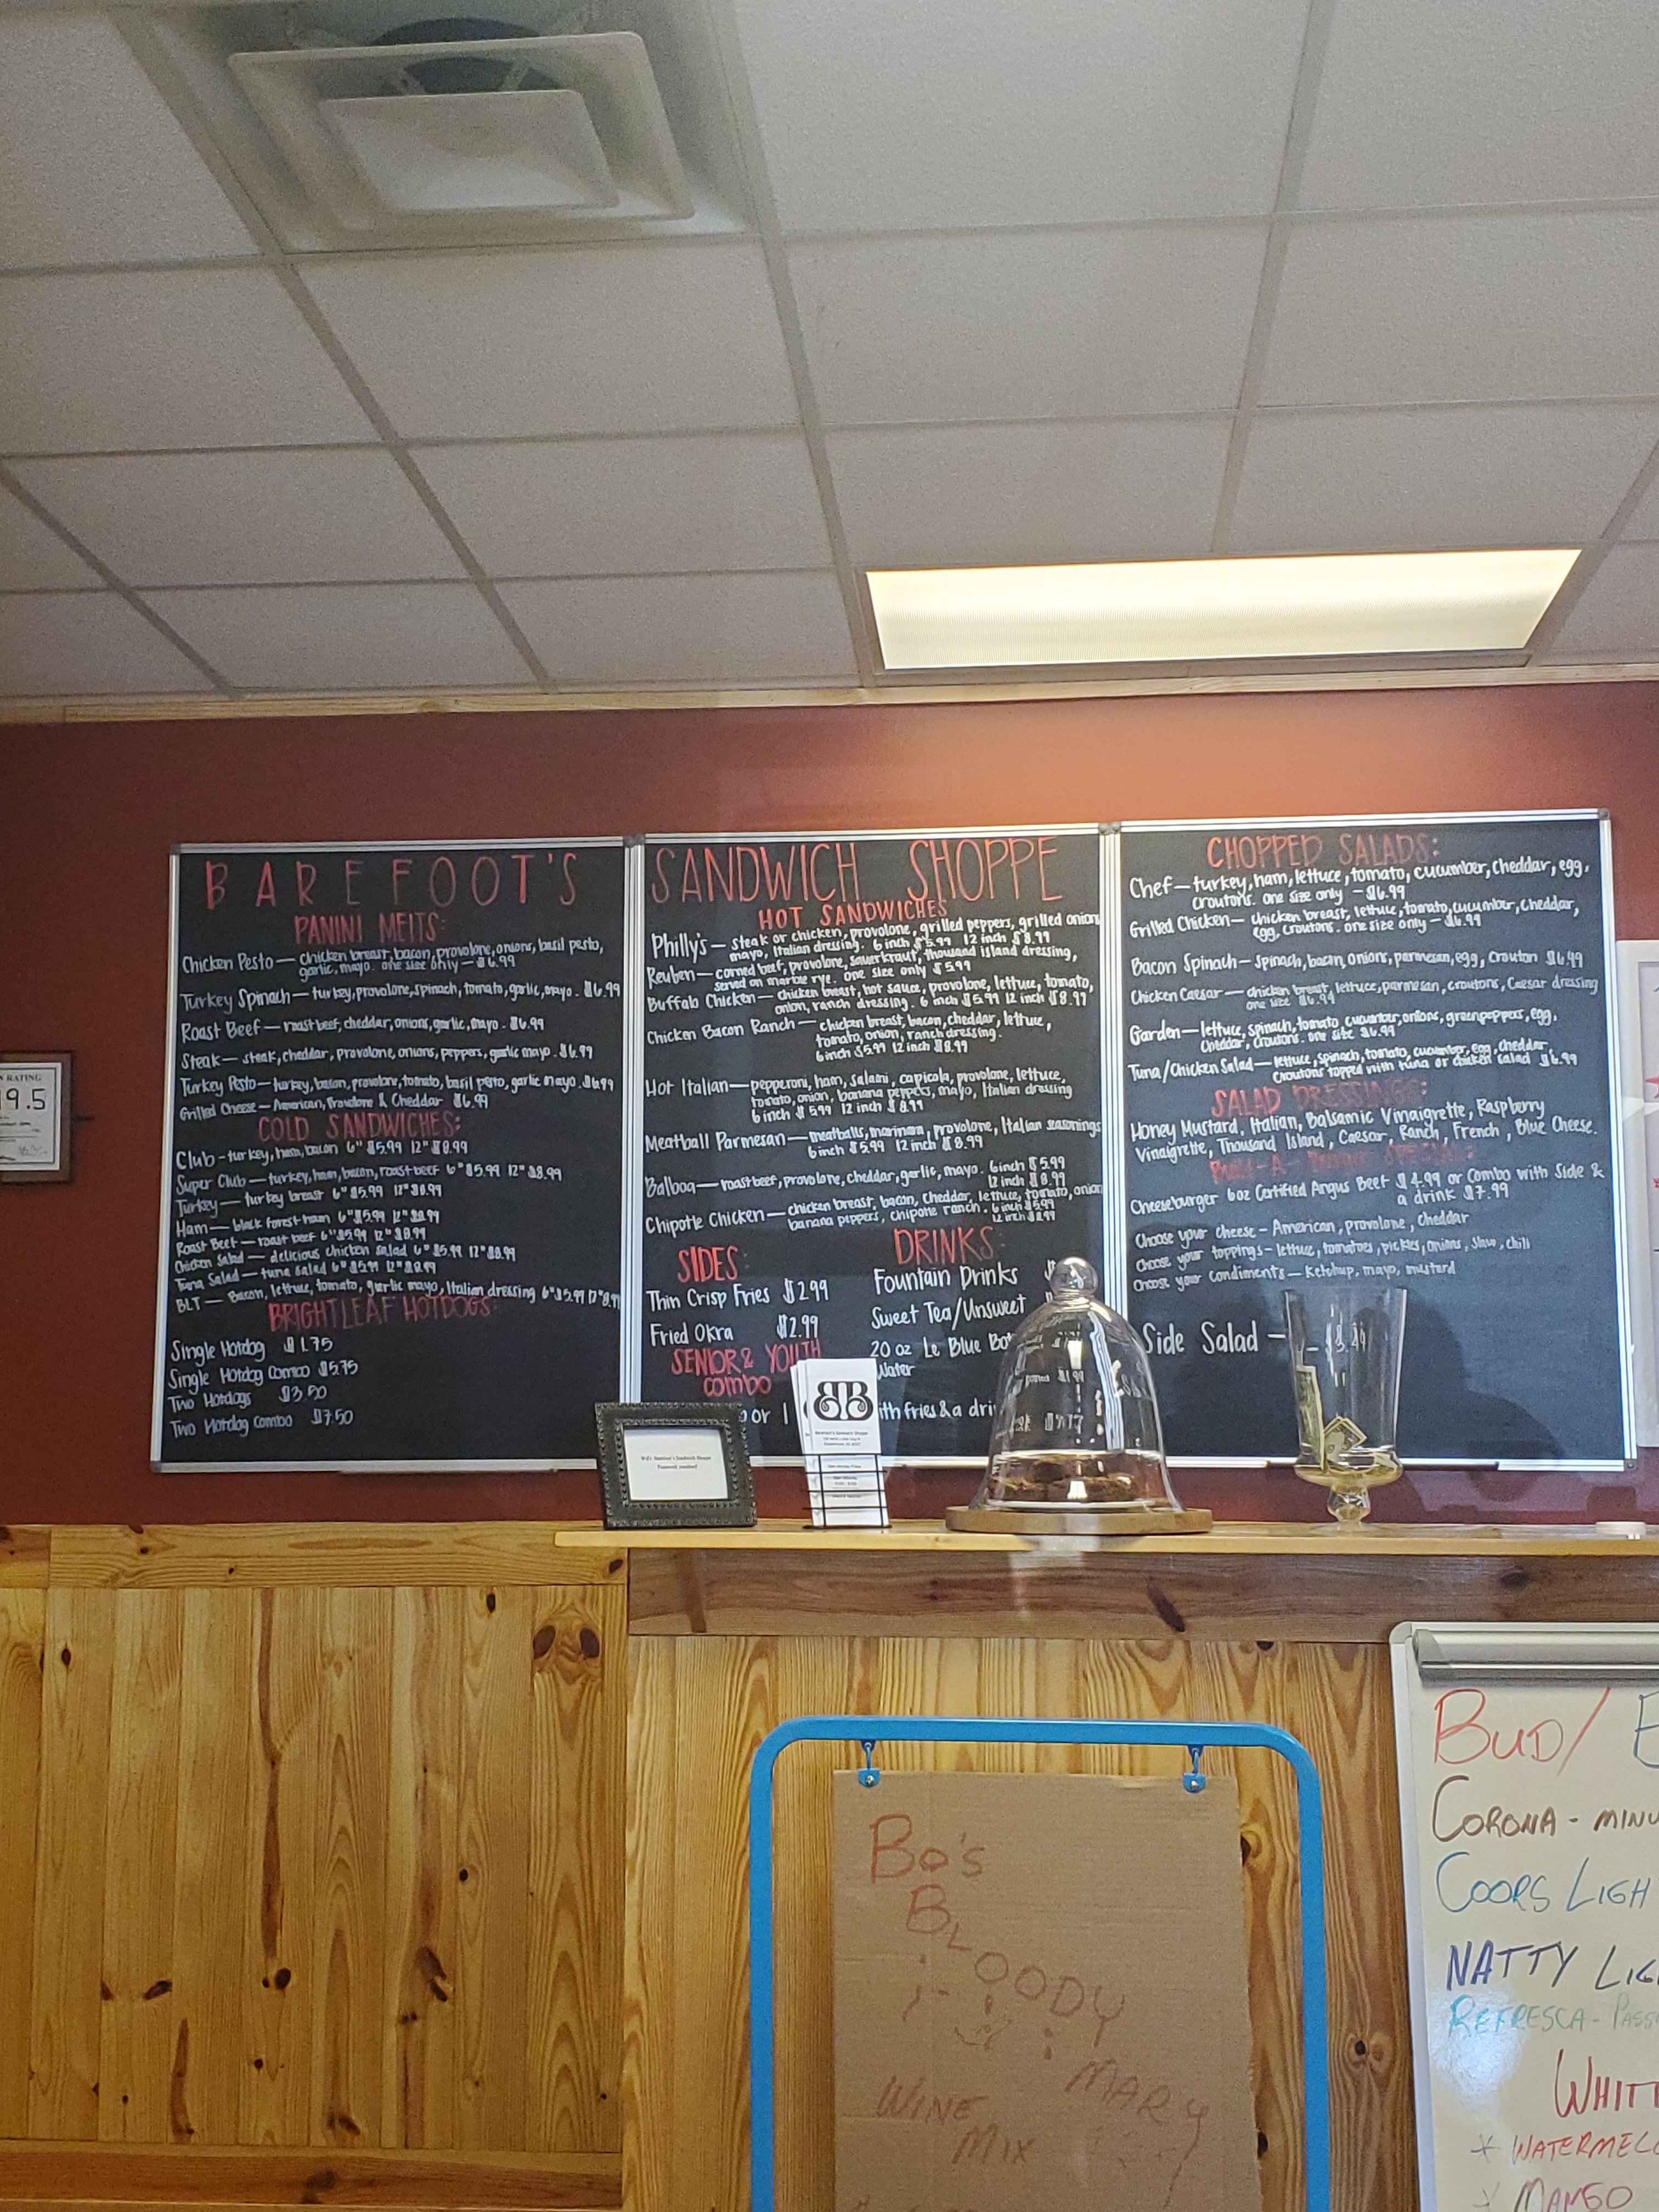 BAREFOOT'S
PANINI MELTS:
Chicken Pesto — chicken breast, bacon, provolone, onions, basil pesto,
garlic, mayo. one size only — $6.99
Turkey Spinach — turkey, provolone, spinach, tomato, garlic, mayo. $6.99
Roast Beef — roast beef, cheddar, onions, garlic, mayo. $6.99
Steak — steak, cheddar, provolone, onions, peppers, garlic mayo. $6.99
Turkey Pesto — turkey, bacon, provolone, tomato, basil pesto, garlic mayo. $6.99
Grilled Cheese — American, Provolone & Cheddar $6.99
COLD SANDWICHES:
Club - turkey, ham, bacon 6" $5.99 12" $8.99
Super Club — turkey, ham, bacon, roast beef 6" $5.99 12" $8.99
Turkey — turkey breast 6" $5.99 12" $8.99
Ham — black forest ham 6" $5.99 12" $8.99
Roast Beef — roast beef 6" $5.99 12" $8.99
Chicken Salad — delicious chicken salad 6" $5.99 12" $8.99
Tuna Salad — tuna salad 6" $5.99 12" $8.99
BLT — Bacon, lettuce, tomato, garlic mayo, Italian dressing 6" $5.99 12" $8.99
BRIGHTLEAF HOTDOGS:
Single Hotdog $1.75
Single Hotdog Combo $5.75
Two Hotdogs $3.50
Two Hotdog Combo $7.50
SANDWICH SHOPPE
HOT SANDWICHES
Philly's — steak or chicken, provolone, grilled peppers, grilled onions
mayo, Italian dressing. 6 inch $5.99 12 inch $8.99
Reuben — corned beef, provolone, sauerkraut, thousand island dressing,
served on marble rye. one size only $5.99
Buffalo Chicken — chicken breast, hot sauce, provolone, lettuce, tomato,
onion, ranch dressing. 6 inch $5.99 12 inch $8.99
Chicken Bacon Ranch — chicken breast, bacon, cheddar, lettuce,
tomato, onion, ranch dressing.
6 inch $5.99 12 inch $8.99
Hot Italian — pepperoni, ham, salami, capicola, provolone, lettuce,
tomato, onion, banana peppers, mayo, Italian dressing
6 inch $5.99 12 inch $8.99
Meatball Parmesan — meatballs, marinara, provolone, Italian seasonings
6 inch $5.99 12 inch $8.99
Balboa — roast beef, provolone, cheddar, garlic, mayo. 6 inch $5.99
12 inch $8.99
Chipotle Chicken — chicken breast, bacon, cheddar, lettuce, tomato, onion
banana peppers, chipotle ranch. 6 inch $5.99
12 inch $8.99
SIDES:
Thin Crisp Fries $2.99
Fried Okra $2.99
SENIOR & YOUTH
combo
or 1
ith fries & a dri
DRINKS:
Fountain Drinks
Sweet Tea/Unsweet
20 oz Le Blue Bot
Water
CHOPPED SALADS:
Chef — turkey, ham, lettuce, tomato, cucumber, cheddar, egg,
croutons. one size only — $6.99
Grilled Chicken — chicken breast, lettuce, tomato, cucumber, cheddar,
egg, croutons. one size only — $6.99
Bacon Spinach — spinach, bacon, onions, parmesan, egg, crouton $6.99
Chicken Caesar — chicken breast, lettuce, parmesan, croutons, Caesar dressing
one size $6.99
Garden — lettuce, spinach, tomato, cucumber, onions, green peppers, egg,
cheddar, croutons. one size $6.99
Tuna/Chicken Salad — lettuce, spinach, tomato, cucumber, egg, cheddar,
croutons topped with tuna or chicken salad $6.99
SALAD DRESSINGS:
Honey Mustard, Italian, Balsamic Vinaigrette, Raspberry
Vinaigrette, Thousand Island, Caesar, Ranch, French, Blue Cheese.
Cheeseburger 6oz Certified Angus Beef $4.99 or Combo with Side &
a drink $7.99
Choose your cheese — American, provolone, cheddar
Choose your toppings — lettuce, tomatoes, pickles, onions, slaw, chili
Choose your condiments — Ketchup, mayo, mustard
Side Salad —
RATING
9.5
BB
Barefoot's Sandwich Shoppe
Bo's
BLOODY
MARY
WINE
MIX
BUD/
CORONA - MINU
COORS LIGH
NATTY LIG
REFRESCA - PASS
WHIT
* WATERMELO
* MANGO